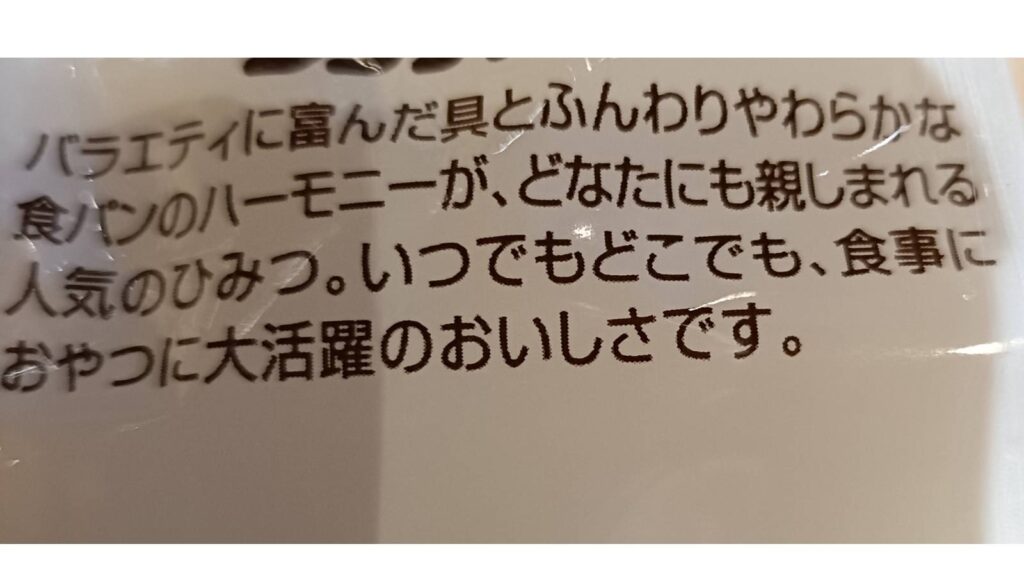 バラエティに富んだ具とふんわりやわらかな
食パンのハーモニーが、どなたにも親しまれる
人気のひみつ。いつでもどこでも、食事に
おやつに大活躍のおいしさです。